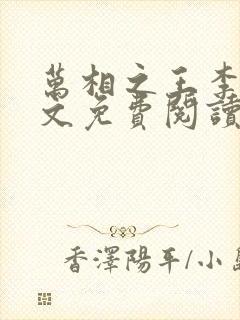 萬相之王李
文免費閱讀
香澤陽平/小島